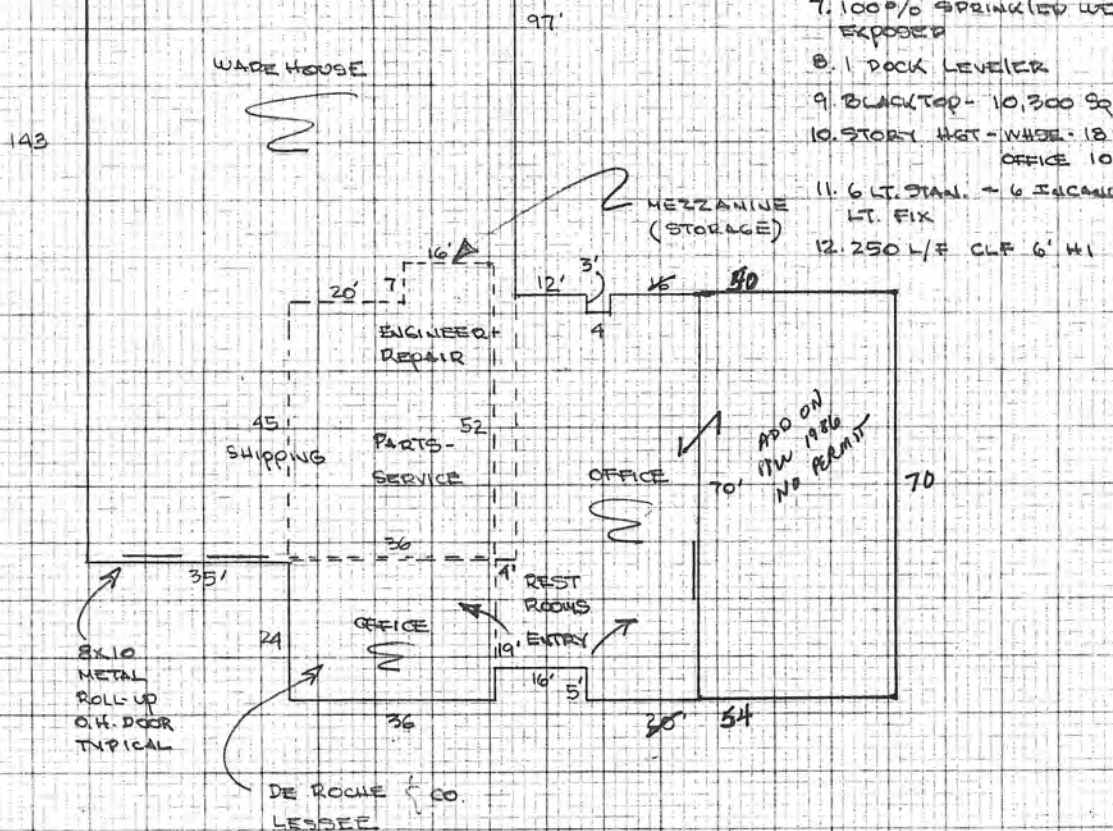 97'
7. 100% SPRINKLED WE
EXPOSED
WARE HOUSE
8. 1 DOCK LEVELER
9. BLACKTOP - 10,300 SQ
143
10. STORY HGT - WHSE - 18
OFFICE 10
11. 6 LT. STAN. - 6 INCAND
LT. FIX
12. 250 L/F CLF 6' HI
MEZZANINE
(STORAGE)
16'
20'
7
12'
3'
4
16'
40
ENGINEER +
REPAIR
45
SHIPPING
52
PARTS -
SERVICE
OFFICE
70'
ADD ON
1986
NO PERMIT
70
36
35'
4'
REST
ROOMS
ENTRY
OFFICE
24
19'
16'
5'
8X10
METAL
ROLL-UP
O.H. DOOR
TYPICAL
36
54
DE ROCHE & CO.
LESSEE